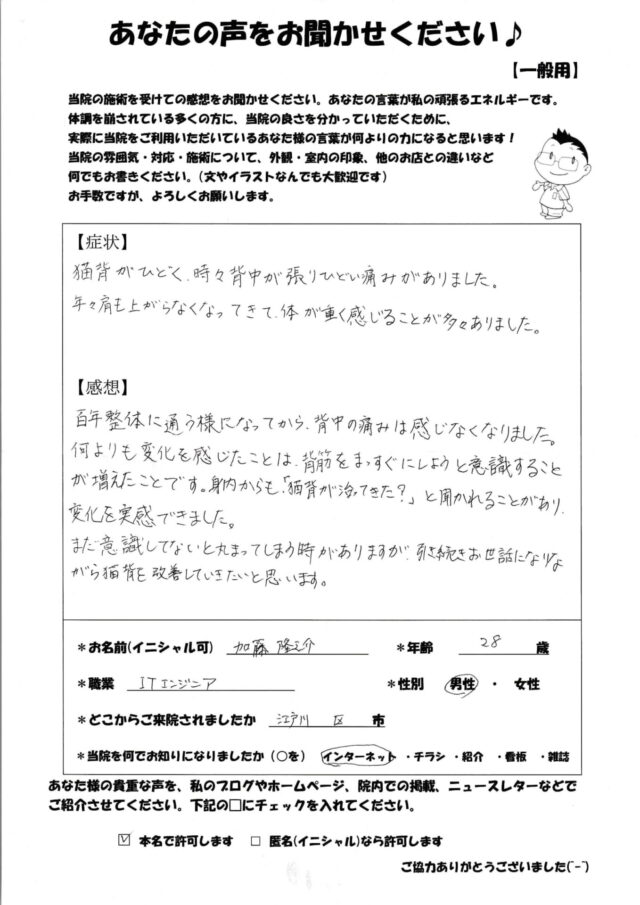 あなたの声をお聞かせください♪
【一般用】
当院の施術を受けての感想をお聞かせください。あなたの言葉が私の頑張るエネルギーです。
体調を崩されている多くの方に、当院の良さを分かっていただくために、
実際に当院をご利用いただいているあなた様の言葉が何よりの力になると思います！
当院の雰囲気・対応・施術について、外観・室内の印象、他のお店との違いなど
何でもお書きください。（文やイラストなんでも大歓迎です）
お手数ですが、よろしくお願いします。
【症状】
猫背がひどく、時々背中が張りひどい痛みがありました。
年々肩も上がらなくなってきて、体が重く感じることが多々ありました。
【感想】
百年整体に通う様になってから、背中の痛みは感じなくなりました。
何よりも変化を感じたことは、背筋をまっすぐにしようと意識すること
が増えたことです。身内からも、「猫背が治ってきた？」と聞かれることがあり、
変化を実感できました。
まだ意識してないと丸まってしまう時がありますが、引き続きお世話になりな
がら猫背を改善していきたいと思います。
＊お名前(イニシャル可) 加藤 隆之介 ＊年齢 28 歳
＊職業 ITエンジニア ＊性別 男性 ・ 女性
＊どこからご来院されましたか 江戸川 区 市
＊当院を何でお知りになりましたか（○を） インターネット ・チラシ ・紹介 ・看板 ・雑誌
あなた様の貴重な声を、私のブログやホームページ、院内での掲載、ニュースレターなどで
ご紹介させてください。下記の□にチェックを入れてください。
☑ 本名で許可します □ 匿名(イニシャル)なら許可します
ご協力ありがとうございました(^-^)